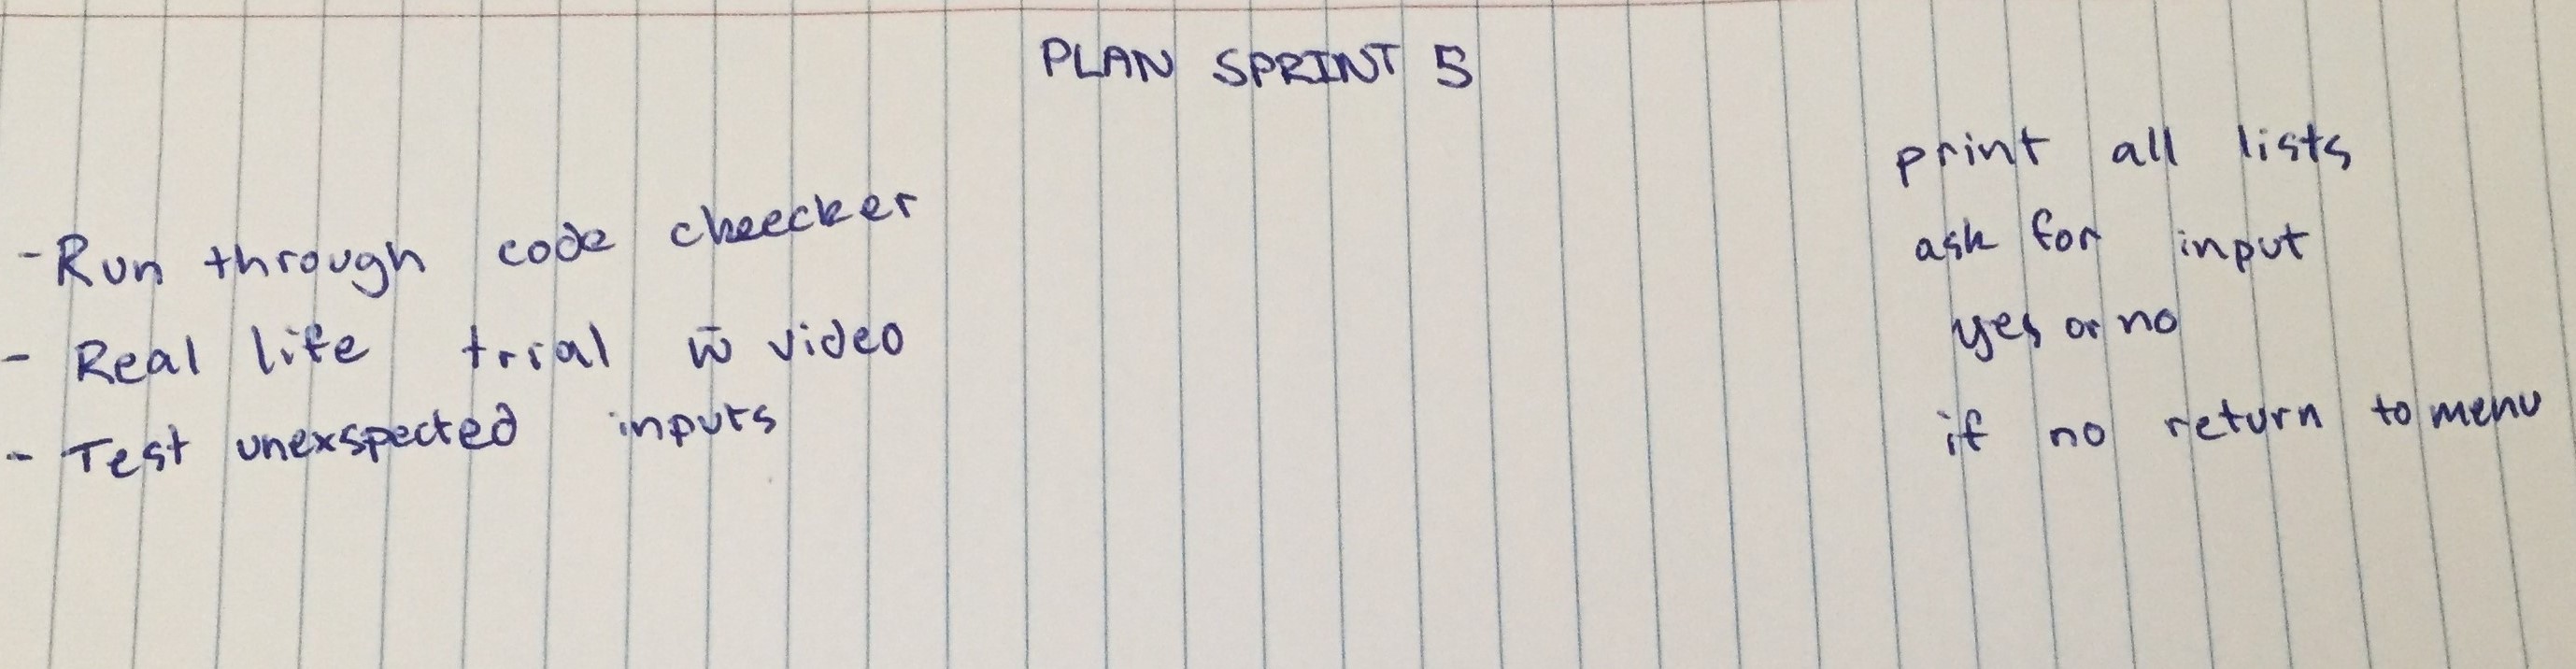 PLAN SPRINT 5
- Run through code checker
- Real life trial w̄ video
- Test unexspected inputs
print all lists
ask for input
yes or no
if no return to menu